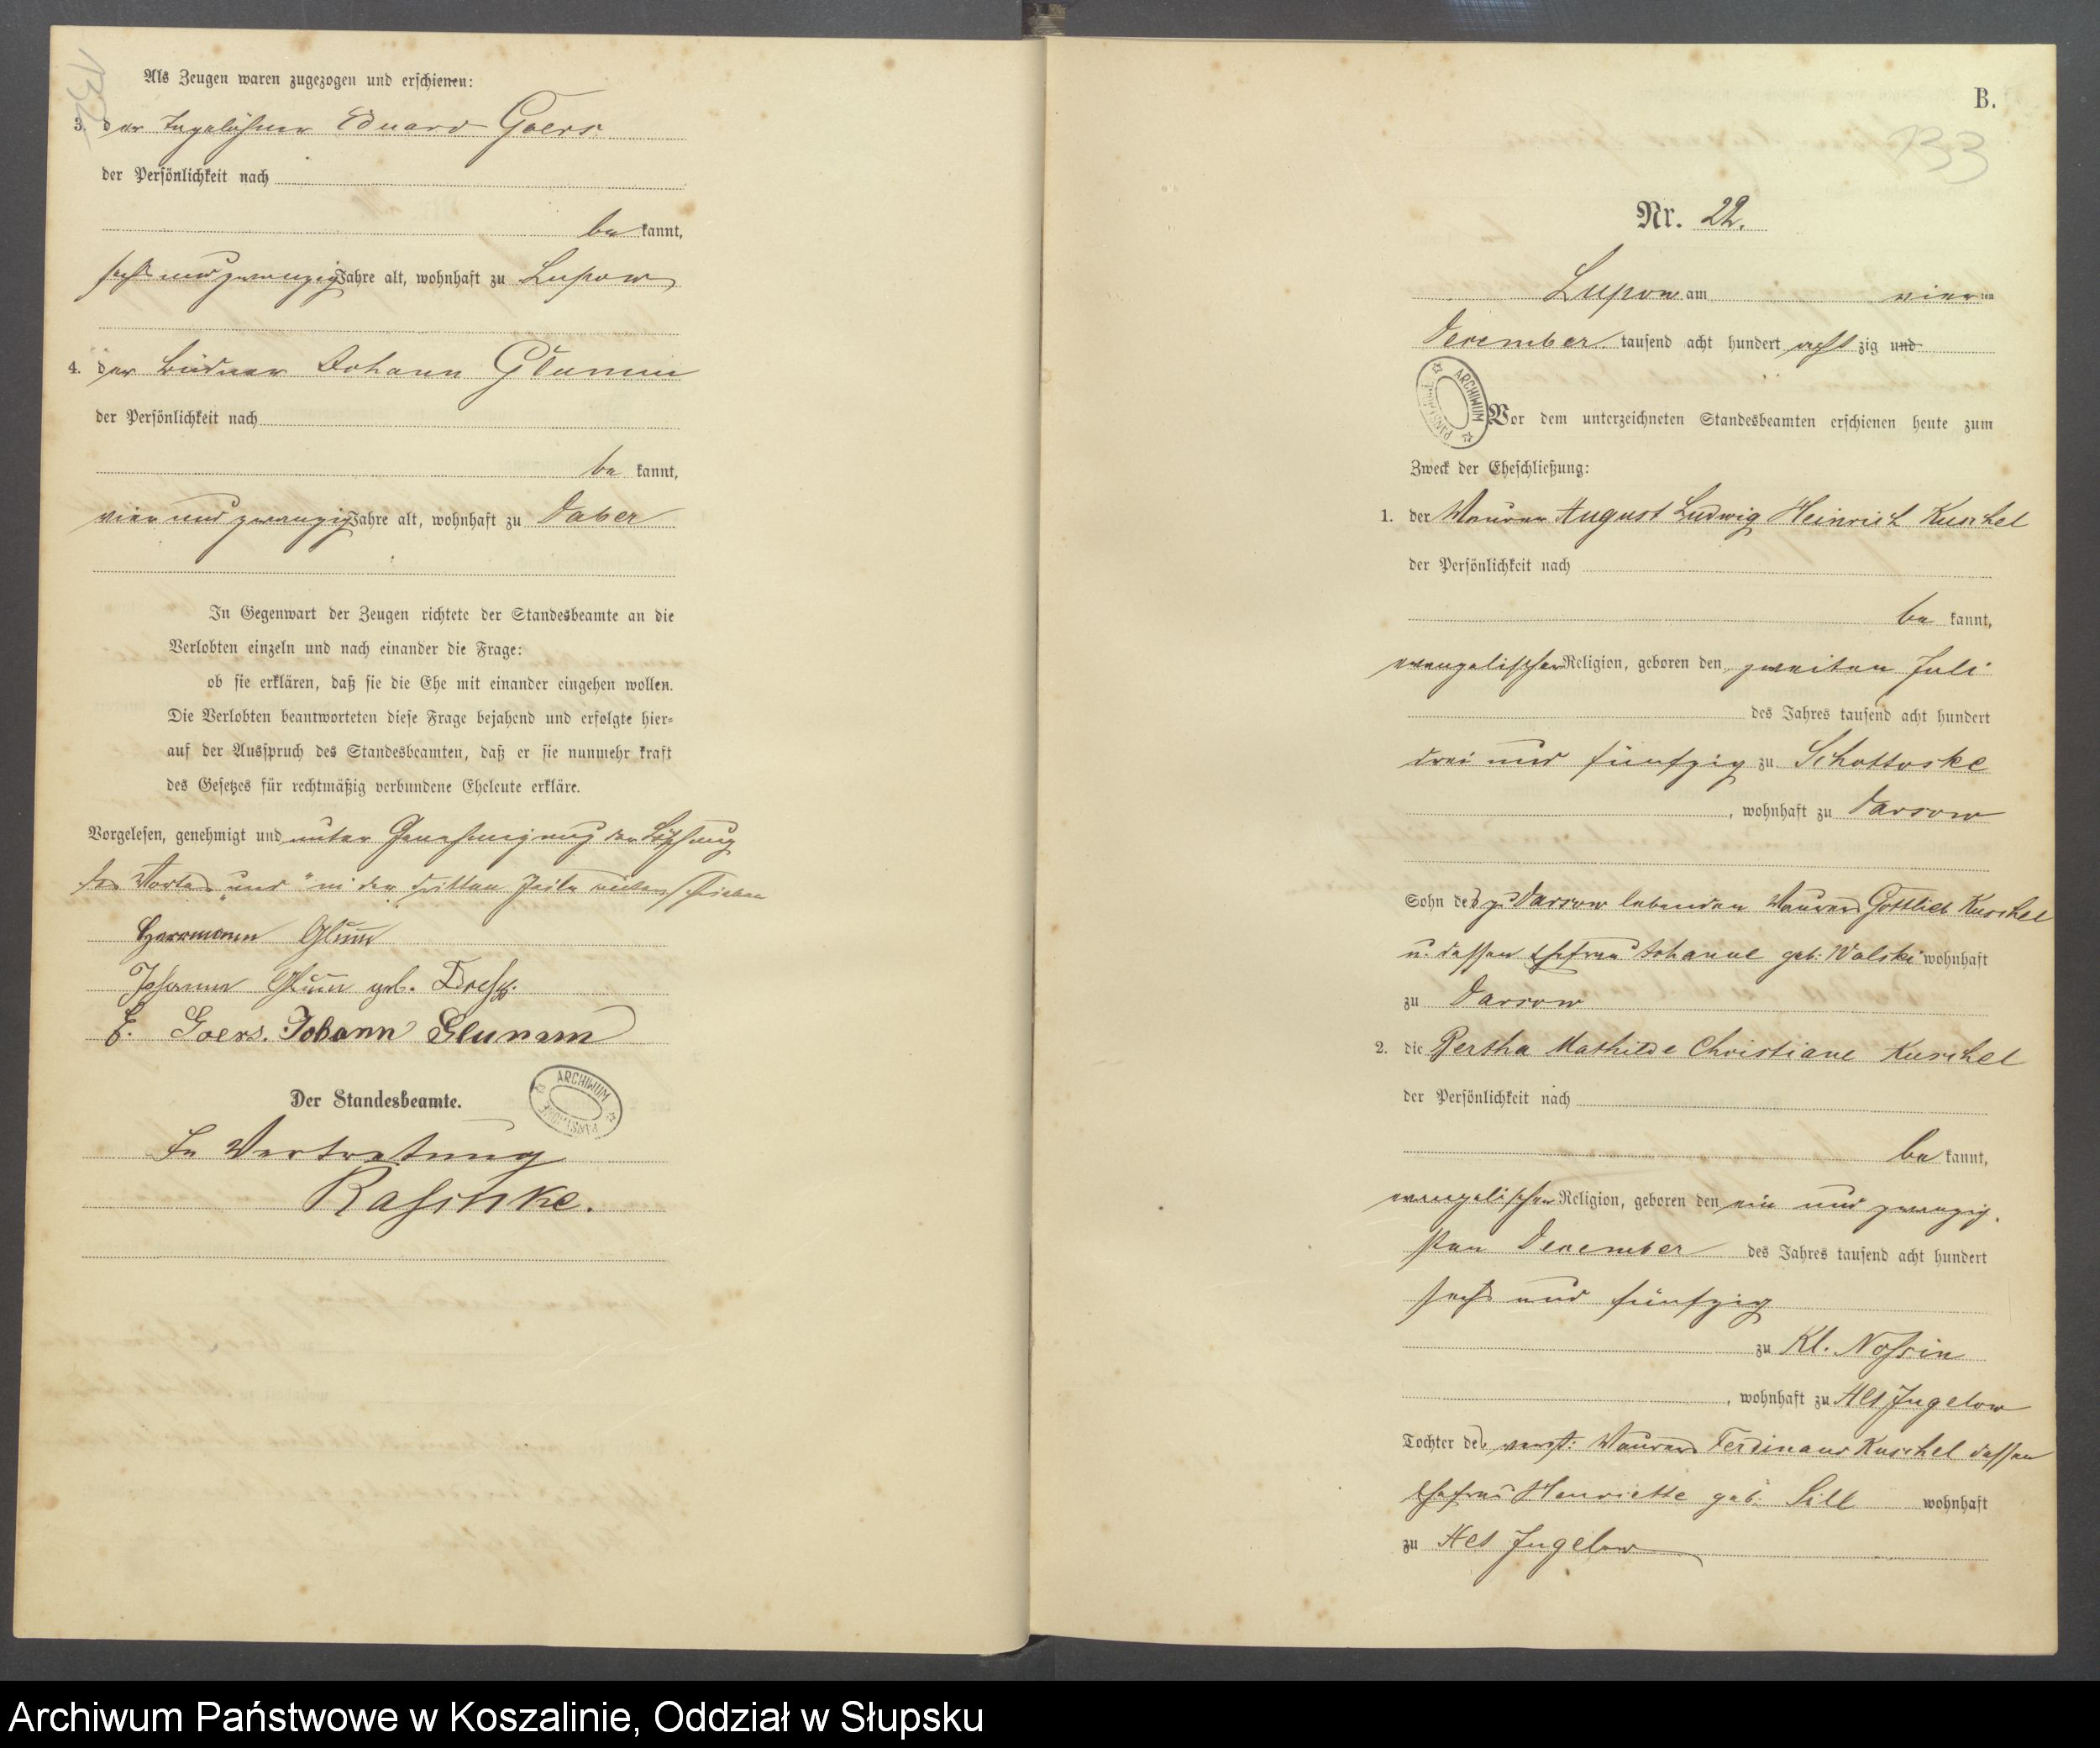 132
Als Zeugen waren zugezogen und erschienen:
3. der Tagelöhner Eduard Goers
der Persönlichkeit nach
be kannt,
sechs und zwanzig Jahre alt, wohnhaft zu Lupow
4. der Büdner Johann Glumm
der Persönlichkeit nach
be kannt,
vier und zwanzig Jahre alt, wohnhaft zu Daber
In Gegenwart der Zeugen richtete der Standesbeamte an die
Verlobten einzeln und nach einander die Frage:
ob sie erklären, daß sie die Ehe mit einander eingehen wollen.
Die Verlobten beantworteten diese Frage bejahend und erfolgte hier=
auf der Ausspruch des Standesbeamten, daß er sie nunmehr kraft
des Gesetzes für rechtmäßig verbundene Eheleute erkläre.
Vorgelesen, genehmigt und unter Genehmigung der Löschung
des Wortes „und" in der dritten Zeile unterschrieben
Herrmann Glum
Johanna Glum geb.
E. Goers. Johann Glumm
Der Standesbeamte.
ARCHIWUM PAŃSTWOWE
In Vertretung
Raschke.
B.
133
Nr. 22.
Lupow am vier ten
December tausend acht hundert acht zig und
ARCHIWUM PAŃSTWOWE
Vor dem unterzeichneten Standesbeamten erschienen heute zum
Zweck der Eheschließung:
1. der Maurer August Ludwig Heinrich Kuschel
der Persönlichkeit nach
be kannt,
evangelischer Religion, geboren den zweiten Juli
des Jahres tausend acht hundert
drei und fünfzig zu Schottofske
, wohnhaft zu Darsow
Sohn des zu Darsow lebenden Maurers Gottlieb Kuschel
u. dessen Ehefrau Johanne geb. Walski wohnhaft
zu Darsow
2. die Bertha Mathilde Christiane Kuschel
der Persönlichkeit nach
be kannt,
evangelischer Religion, geboren den ein und zwanzig
sten December des Jahres tausend acht hundert
sechs und fünfzig
zu Kl. Nossin
, wohnhaft zu Alt Jugelow
Tochter des verst: Maurers Ferdinand Kuschel dessen
Ehefrau Henriette geb: Sill wohnhaft
zu Alt Jugelow
Archiwum Państwowe w Koszalinie, Oddział w Słupsku